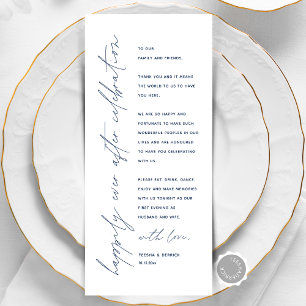 happily ever after celebration
TO OUR
FAMILY AND FRIENDS,
THANK YOU AND IT MEANS
THE WORLD TO US TO HAVE
YOU HERE.
WE ARE SO HAPPY AND
FORTUNATE TO HAVE SUCH
WONDERFUL PEOPLES IN OUR
LIVES AND ARE HONOURED
TO HAVE YOU CELEBRATING
WITH US.
PLEASE EAT, DRINK, DANCE,
ENJOY AND MAKE MEMORIES
WITH US TONIGHT AS OUR
FIRST EVENING AS
HUSBAND AND WIFE.
with love,
TEESHA & DERRICK